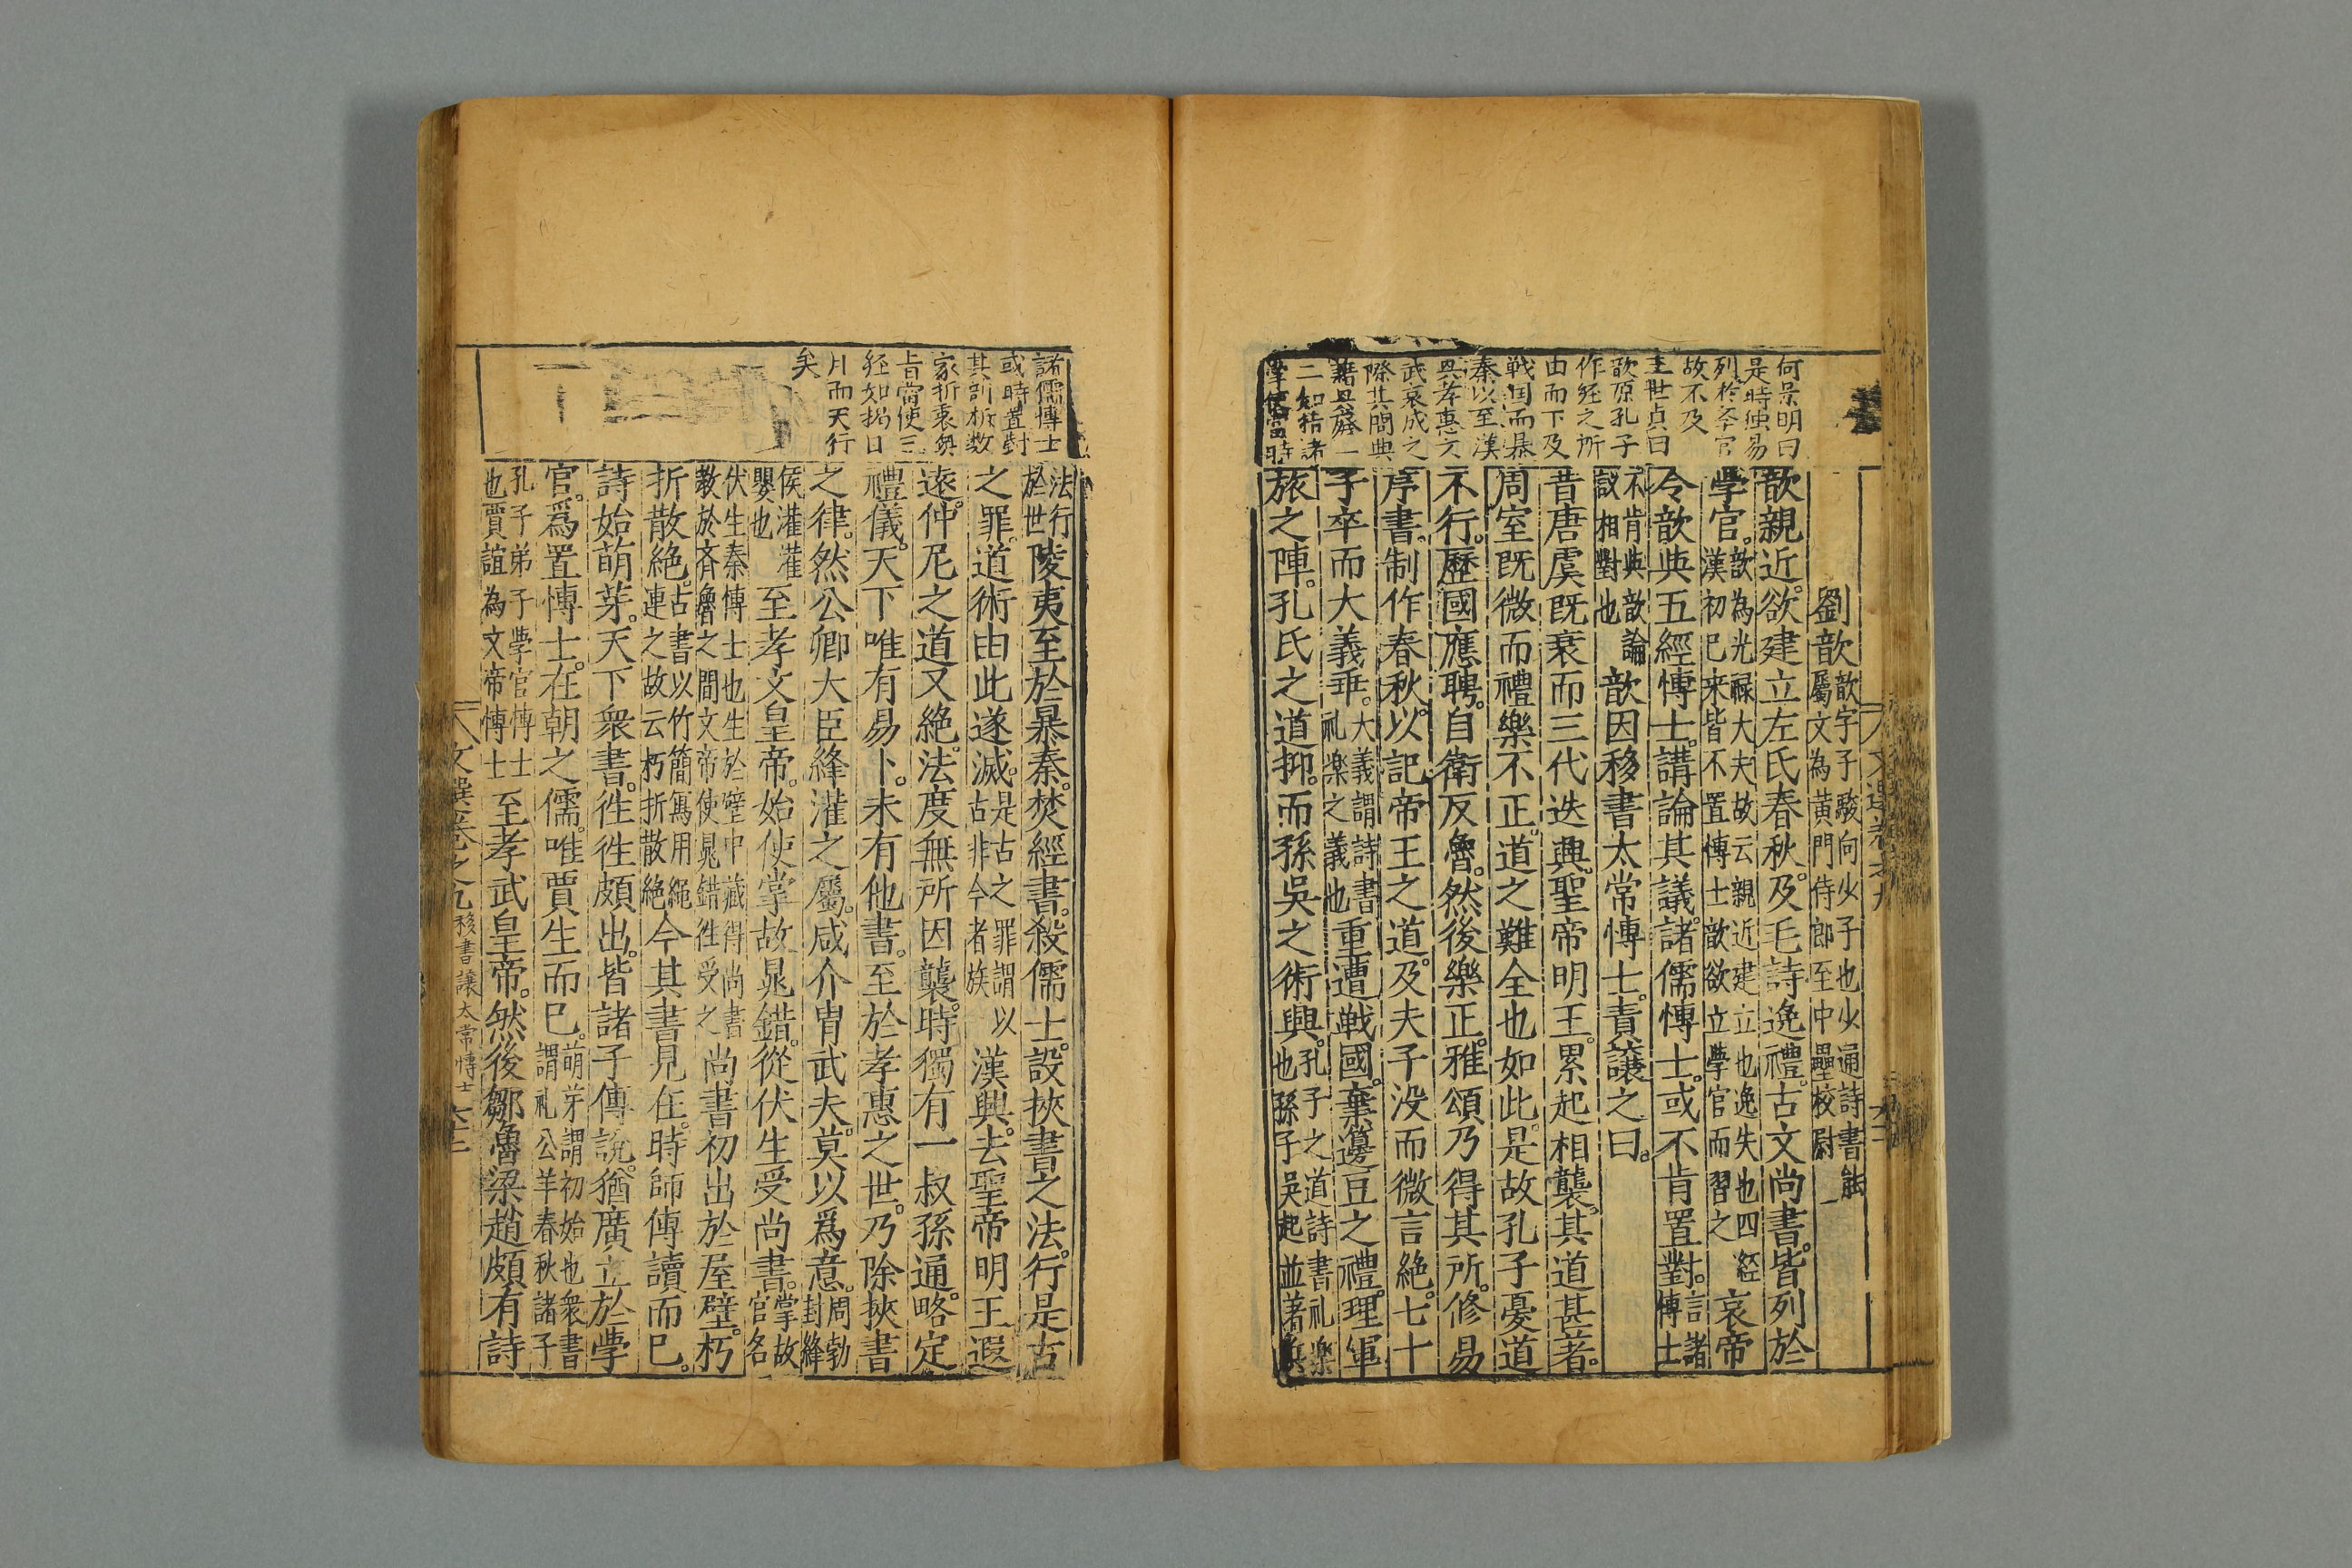 何景明曰
是時獨易
列於學官
故不及
王世貞曰
歆原孔子
作經之所
由而下及
戰国而暴
秦以至漢
興孝惠文
武哀成之
際其間典
籍興廢一
二如指諸
掌儘當時
劉歆
歆字子駿向少子也少通詩書能
屬文為黃門侍郎至中壘校尉
歆親近。欲建立左氏春秋。及毛詩逸禮。古文尚書。皆列於
學官。
歆為光祿大夫故云親近建立也逸失也四経
漢初已来皆不置博士歆欲立學官而習之
哀帝
令歆與五經博士。講論其議。諸儒博士。或不肯置對。
言諸
博士
不肯與歆論
議相對也
歆因移書太常博士。責讓之曰。
昔唐虞既衰而三代迭興。聖帝明王。累起相襲。其道甚著。
周室既微而禮樂不正。道之難全也如此。是故孔子憂道
不行。歷國應聘。自衛反魯。然後樂正。雅頌乃得其所。修易
序書。制作春秋。以記帝王之道。及夫子没而微言絶。七十
子卒而大義乖。
大義謂詩書
礼樂之義也
重遭戰國。棄籩豆之禮。理軍
旅之陣。孔氏之道抑。而孫吳之術興。
孔子之道詩書礼樂
也孫子吳起並著兵
文選卷之九
諸儒博士
或時置對
其剖析数
家折衷與
旨當使三
經如揭日
月而天行
矣
法行
於世
陵夷至於暴秦。焚經書。殺儒士。設挾書之法。行是古
之罪。道術由此遂滅。
是古之罪謂以
古非今者族
漢興。去聖帝明王遐
遠。仲尼之道又絶。法度無所因襲。時獨有一叔孫通。略定
禮儀。天下唯有易卜。未有他書。至於孝惠之世。乃除挾書
之律。然公卿大臣絳灌之屬。咸介冑武夫。莫以爲意。
周勃
封絳
侯灌灌
嬰也
至孝文皇帝。始使掌故晁錯。從伏生受尚書。
掌故
官名
伏生秦博士也生於壁中藏得尚書
教於齊魯之間文帝使晁錯徃受之
尚書初出於屋壁。朽
折散絶。
古書以竹簡寫用繩
連之故云朽折散絶
今其書見在。時師傳讀而已。
詩始萌芽。天下衆書。徃徃頗出。皆諸子傳説。猶廣立於學
官。爲置博士。在朝之儒。唯賈生而已。
萌芽謂初始也衆書
謂礼公羊春秋諸子
孔子弟子學官博士
也賈誼為文帝博士
至孝武皇帝。然後鄒魯梁趙頗有詩
文選卷之九 移書讓太常博士